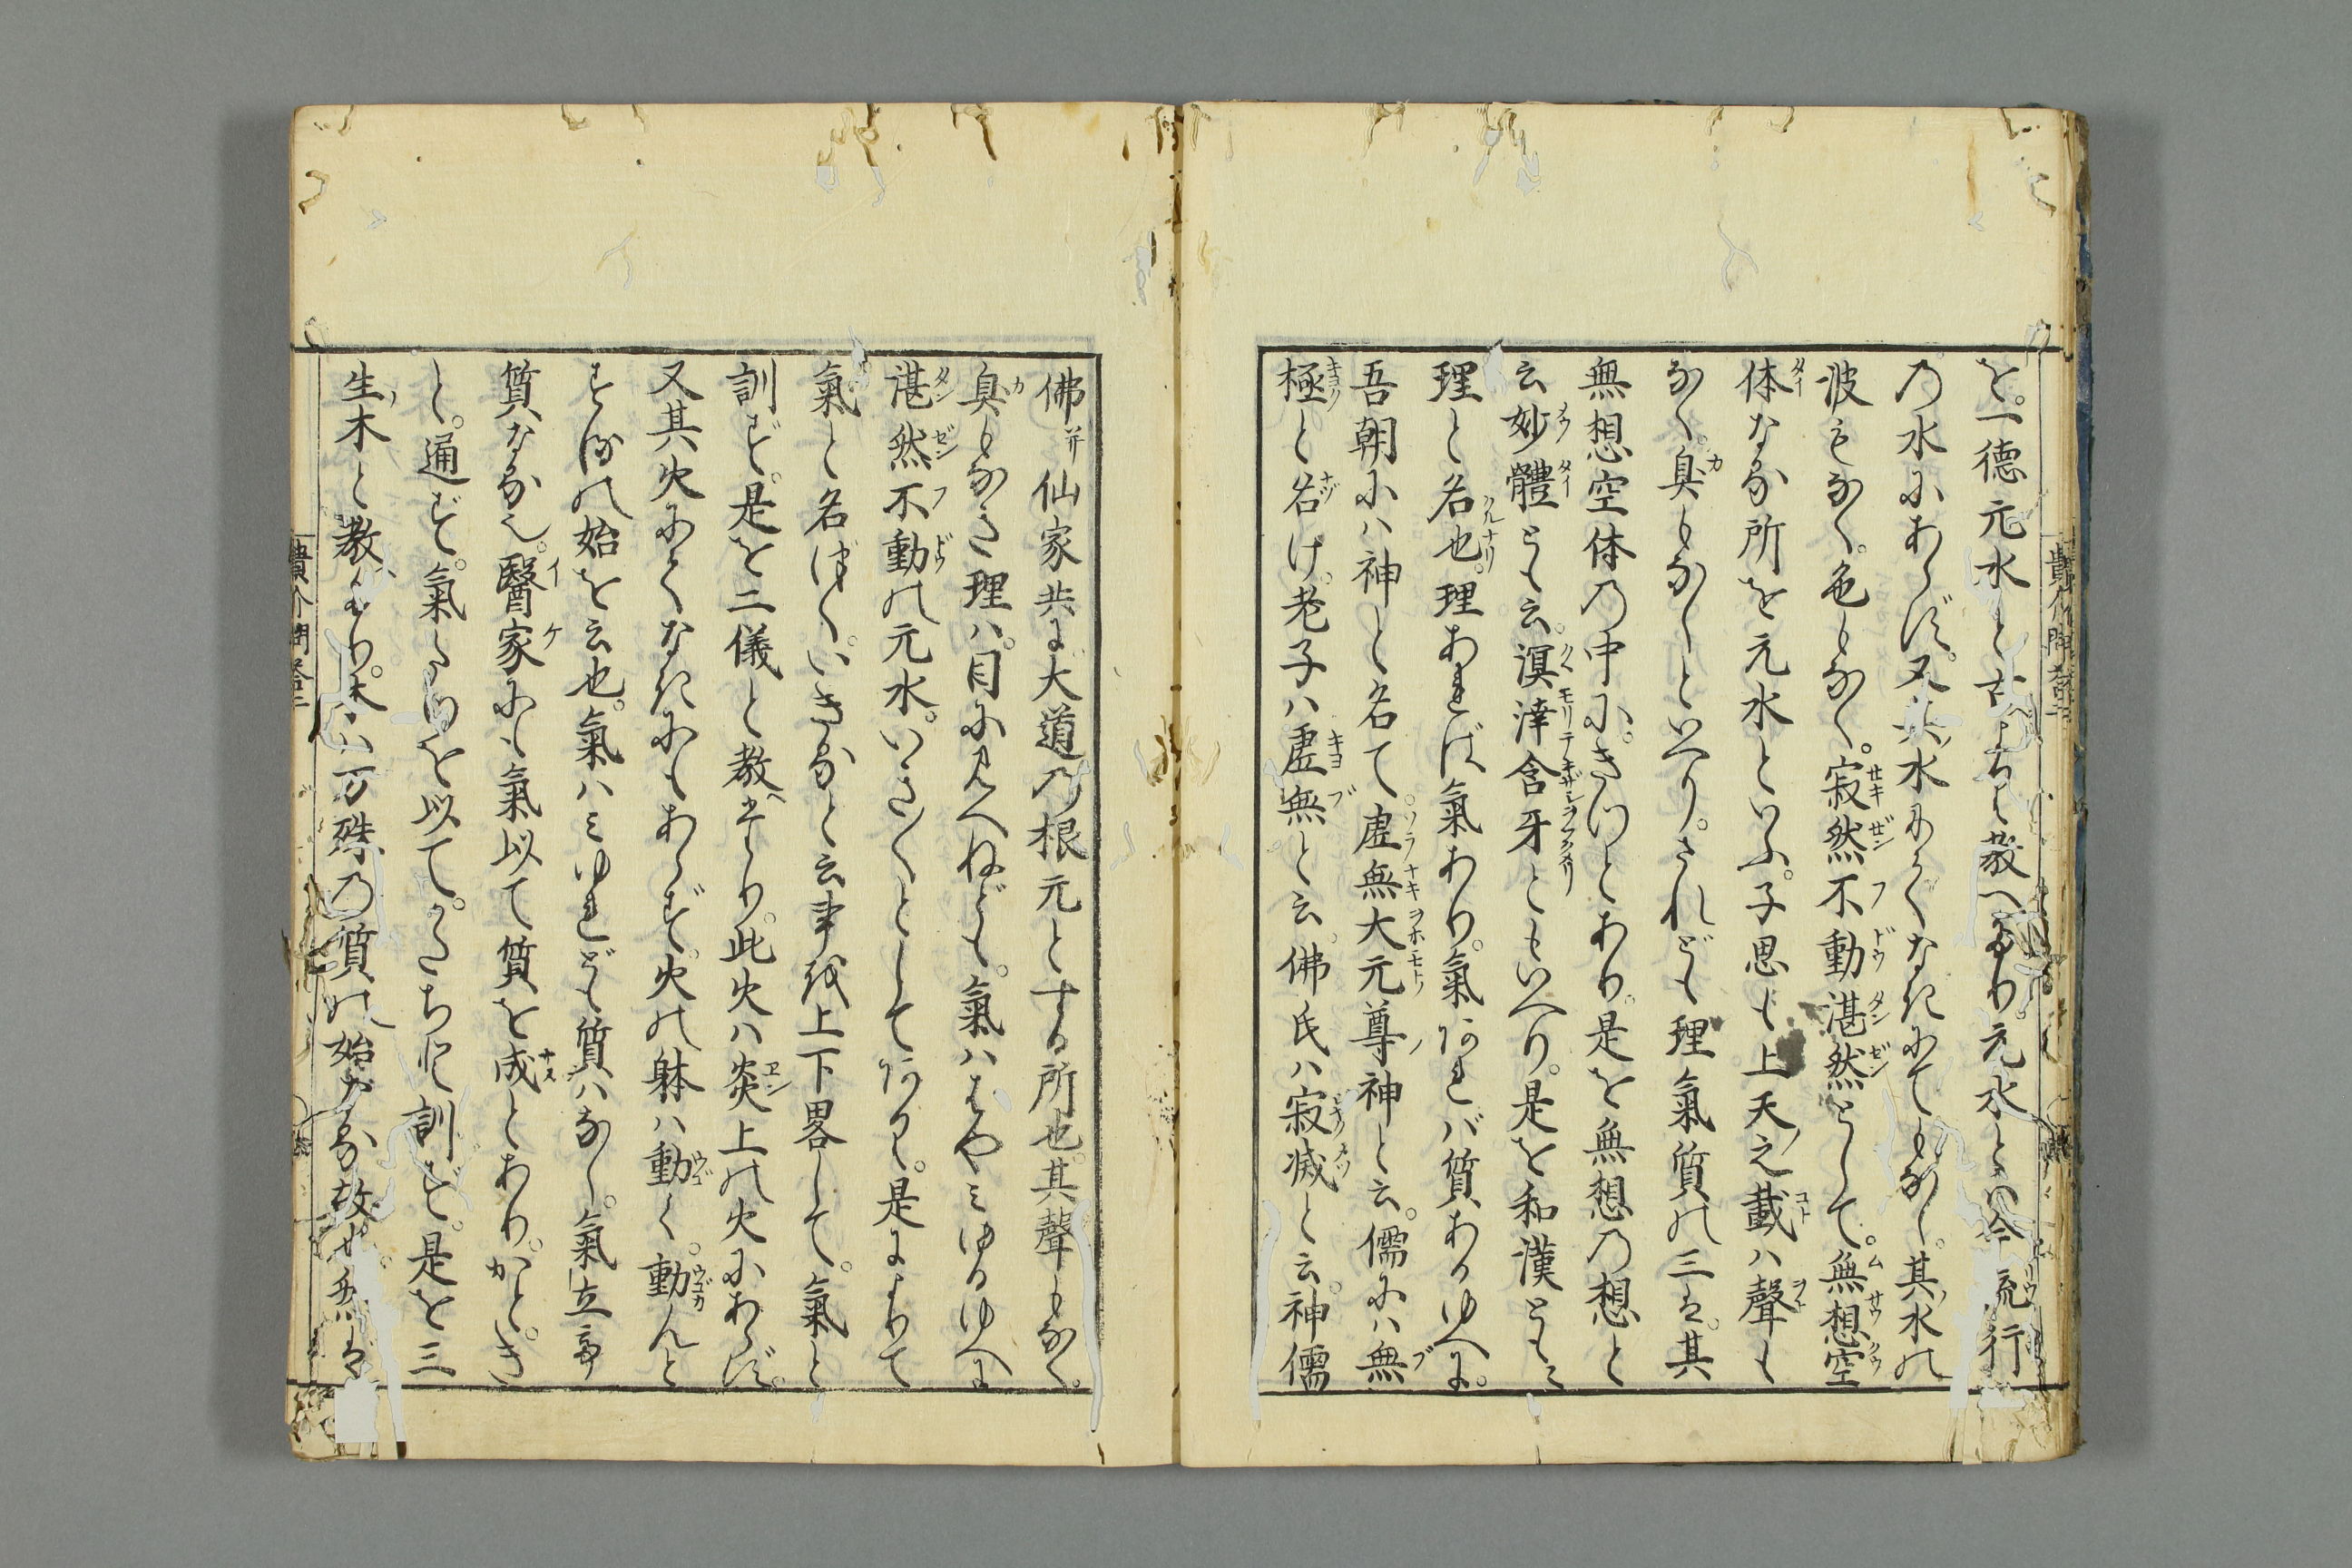 を。一徳元水と古よりも教へ有り。元水とハ今流行
乃水にあらず。又氷水にてなきにてもなし。其水の
波もなく。色もなく。寂然不動湛然として。無想空
体なる所を元水といふ。子思も上天之載ハ聲も
なく。臭もなしといへり。されども理氣質の三は。其
無想空体の中に。きつとあり。是を無想乃想と
云妙體とも云。溟涬含牙ともいへり。是を和漢ともに
理と名也。理あれば氣あり。氣あれバ質あるゆへに。
吾朝にハ神と名て。虚無大元尊神と云。儒にハ無
極と名け。老子ハ虚無と云。佛氏ハ寂滅と云。神儒
佛并仙家共に大道乃根元とする所也。其聲もなく。
臭もなき理ハ。目に見へねども。氣ハはやミゆるゆへに
湛然不動の元水。いき〳〵としてあるし。是によりて
氣と名づく。いきなると云事を上下畧して。氣と
訓ず。是を二儀と教へたり。此火ハ炎上の火にあらず。
又其火にてなきにもあらず。火の躰ハ動く。動んと
する の始を云也。氣ハミゆれども質ハなし。氣立
質なる也。醫家にも氣以て質を成とあり。かとき
し。通ず。氣 を以て。かたちと訓ず。是を三
生木と教へたり。木ハ万殊乃質の始なる故